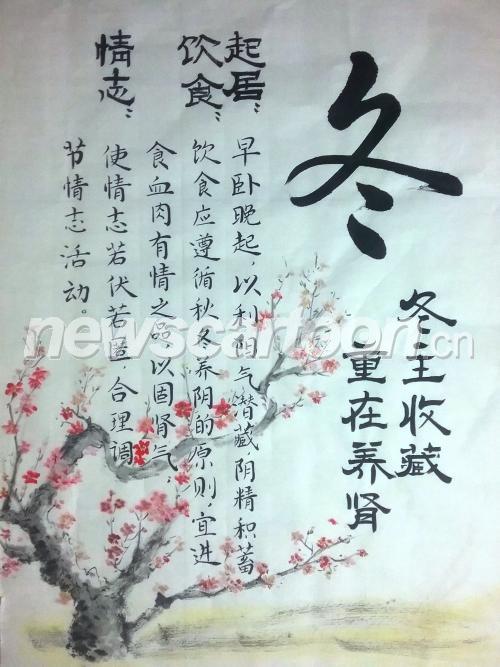 冬
冬主收藏
重在养肾
起居：
早卧晚起，以利阳气潜藏，阴精积蓄
饮食：
饮食应遵循秋冬养阴的原则，宜进
食血肉有情之品以固肾气，
情志：
使情志若伏若匿，合理调
节情志活动。
newscartoon.cn